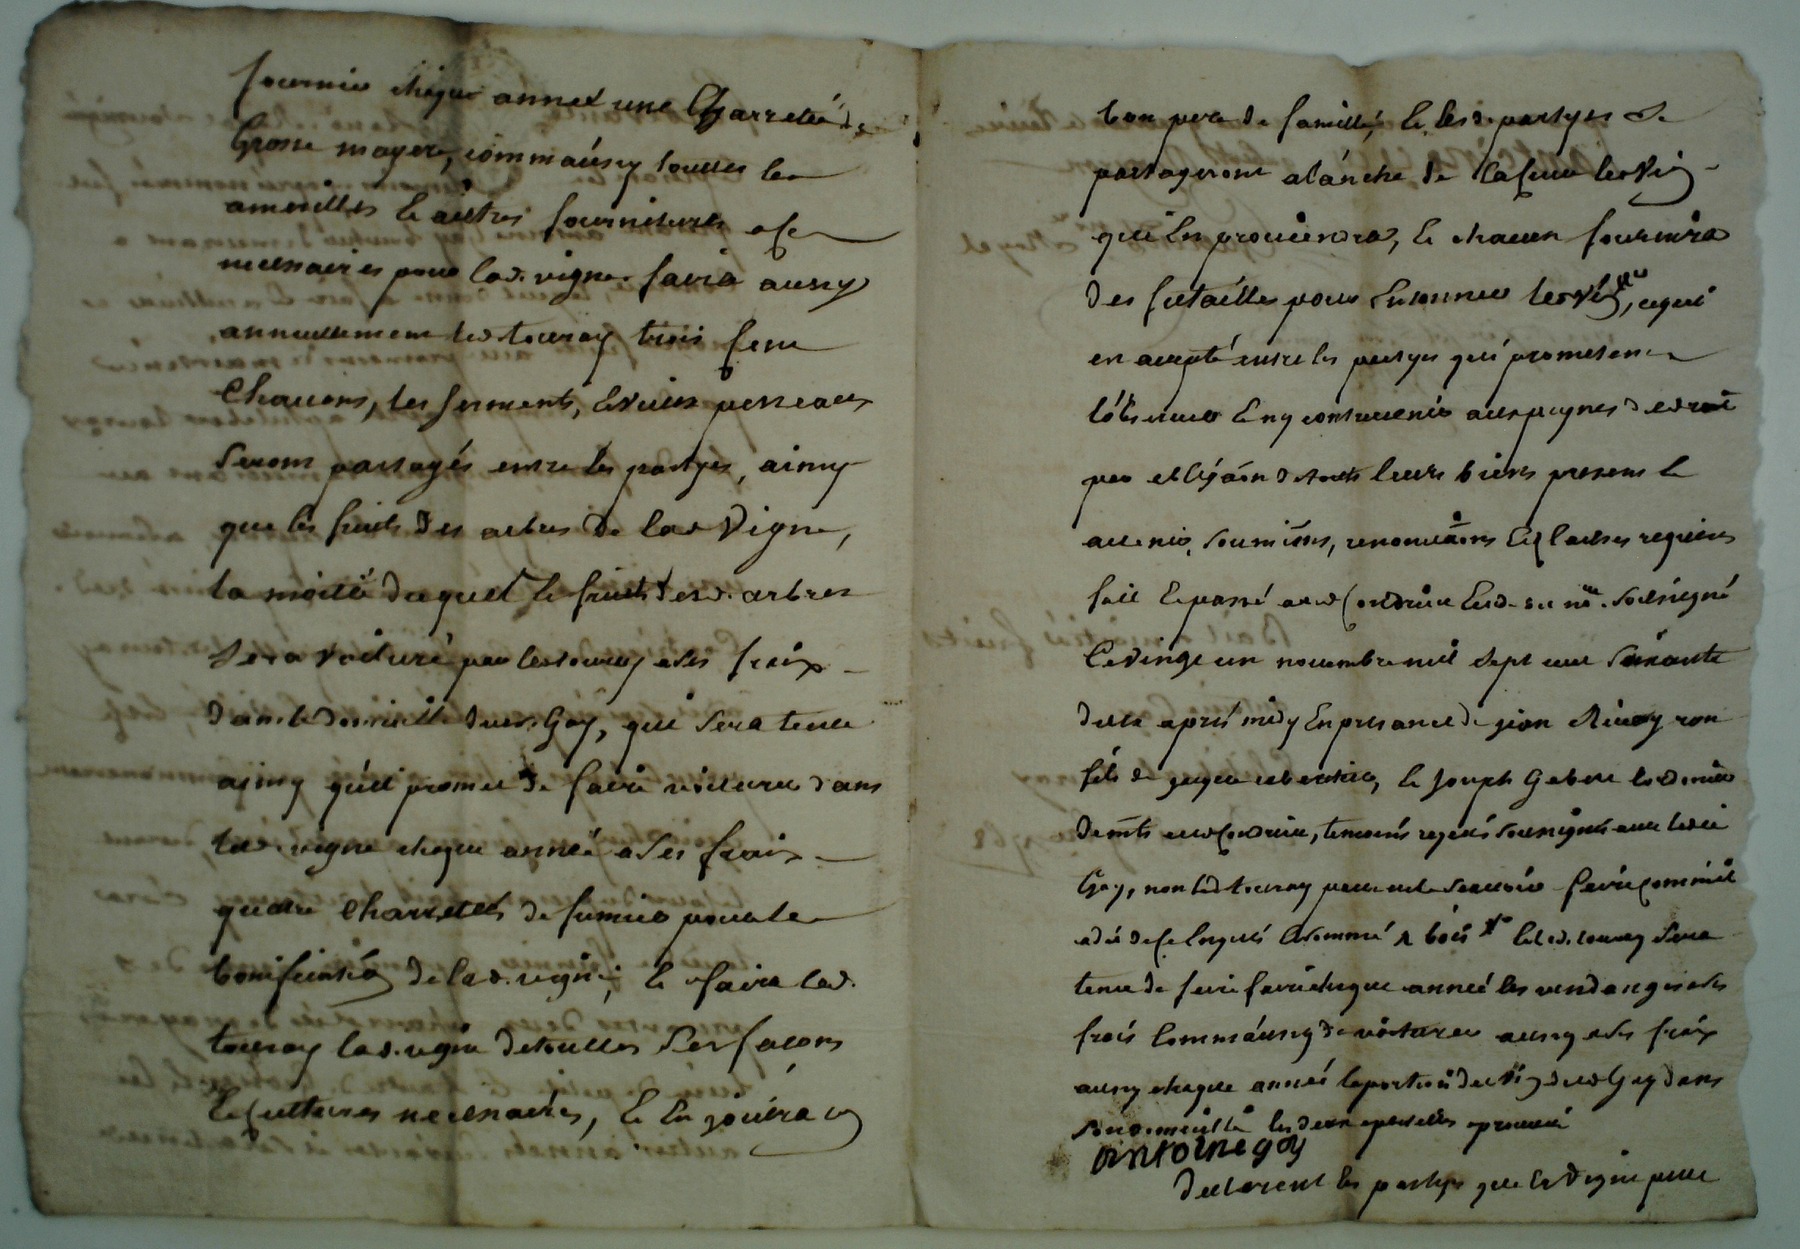 fournir chaque année une Charretée de
Grosse mayere, comm'aussy touttes les
amarilles & autres fournitures
necessaires pour lad. vigne. faira aussy
annuellement led touray trois cent
Chavons, les serments, & vieux pesseaux
seront partagés entre les partyes, ainsy
que les fruits des arbres de lad Vigne,
la moitié duquel & fruits desd. arbres
sera voituré par led touray a ses fraix
dans le domicille dud Gay, qui sera tenu
ainsy qu'il promet de faire voiturer dans
lad. vigne chaque année a ses fraix
quatre Charretées de fumier pour la
bonification de lad. vigne, & faira led.
touray lad. vigne de touttes ses facons
& cultures necessaires, & En jouira en
bon pere de famille, & lesd partyes se
partageront a l'anche de la cuve les Vin
qui En proviendra, & chacun fournira
des futailles pour Entonner led Vin, ce qui
en accepté entre les partyes qui promettent
l'observer & ny contrevenir aux peynes de droit
par obligãon de touts leurs biens presens &
avenir, soumiõns, renonciãons & autres requises
fait & passé aud Condrieu Etude du nre. soussigné
Le vingt un novembre mil sept cent soixante
deux apres midy En presance de
fils de & Joseph
demts aud Condrieu, temoins requis soussignés avec led
Gay, non led touray pour ne le scavoir faire
de ce Enquis & sommé & led. touray sera
tenu de faire faire chaque année les vendanges a ses
frais Comm'aussy de voiturer aussy a ses fraix
aussy chaque année la portion du Vin dud Gay dans
son domicille les deux apostilles aprouvé
Antoine gay
declarent les partyes que la Vigne peut